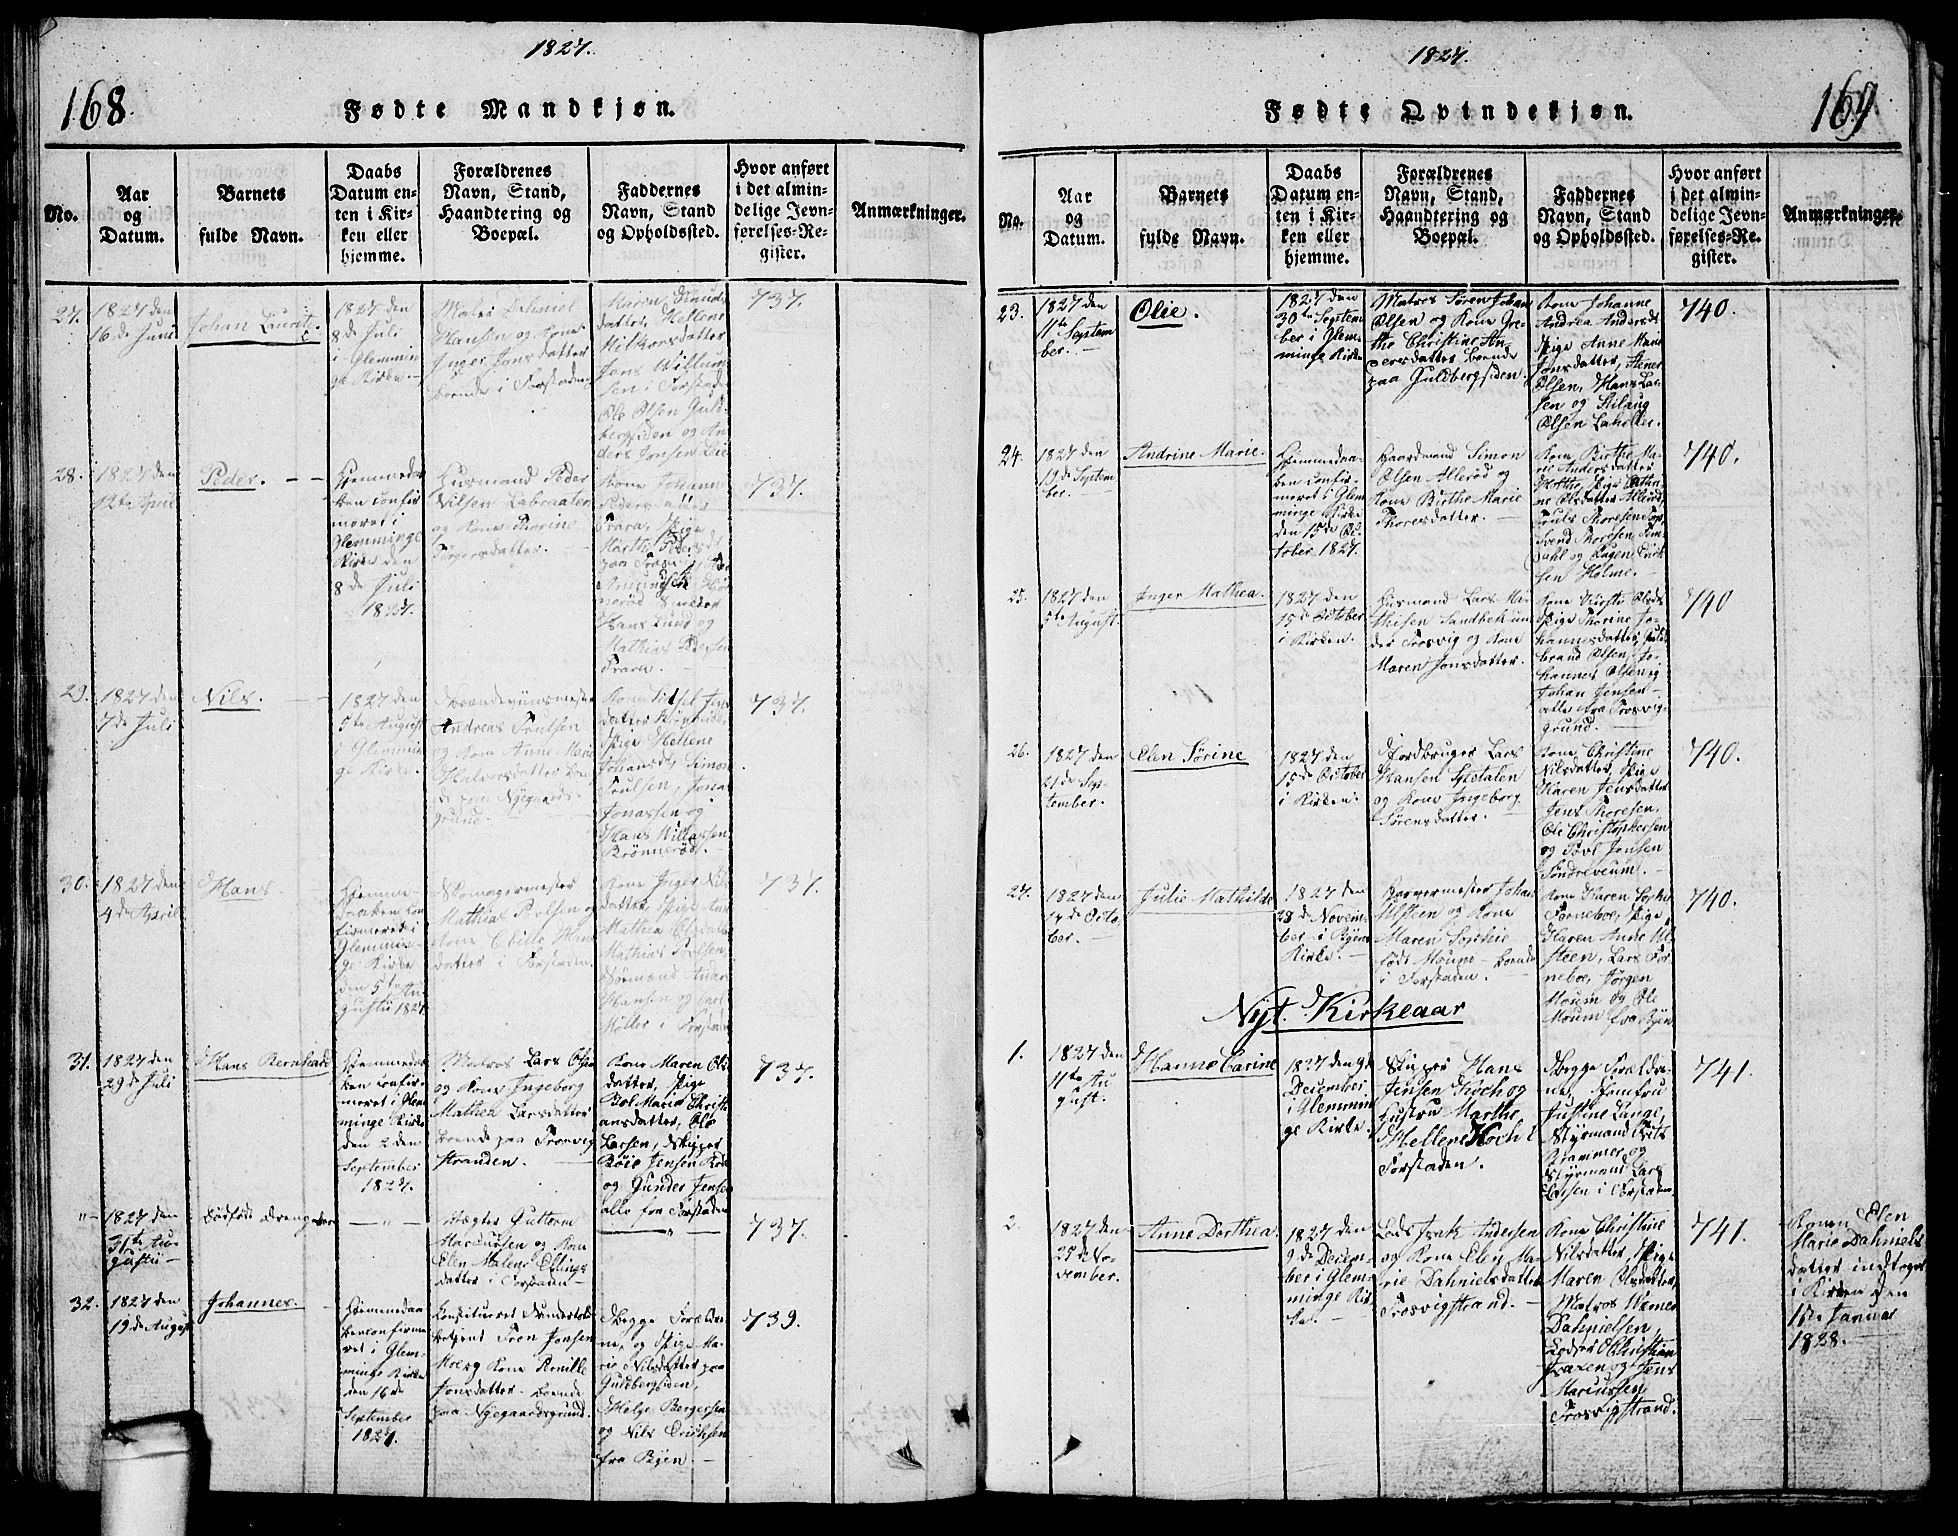 1827.
168
Fødte Mandkjøn.
No.
Aar
og
Datum.
Barnets
fulde Navn.
Daabs
Datum en-
ten i Kir-
ken eller
hjemme.
Forældrenes
Navn, Stand,
Haandtering og
Boepæl.
Faddernes
Navn, Stand
og Opholdssted.
Hvor anført
i det almin-
delige Jevn-
førelses-Re-
gister.
Anmærkninger.
27.
1827 den
16de Juni
Johan Lauritz
1827 den
8de Juli
i Glemmin-
ge Kirke.
Dahniel
Hansen og Kone
Inger Jonsdatter
boende i Forstaden
Jens Willum-
sen i Forstad
Ole Olsen Guld-
bergsiden og An-
ders Jonsen
737.
28.
1827 den
12te April
Peder.
Hjemmedø-
ben confir-
meret i
Glemminge
Kirke den
8de Juli
1827.
Husmand Peder
Nilsen Labraaten
og Kone Thorine
Kone Johanne
Pedersdatter
Trara, Pige
Marthe Pedersdt
Hans Lund og
Mathias Pedersen
Trara.
737.
29.
1827 den
7de Juli
Nils.
1827 den
5te August
i Glemmin-
ge Kirke.
Brændeviinsmester
Andreas Poulsen
og Kone Anne Marie
Halvorsdatter boen-
de paa Nygaards-
grund.
Pige Hellene
Johansd, Simon
Poulsen, Jonas
Jonassen og
Hans Killassen
Brønnerød.
737.
30.
1827 den
4de April
Hans.
Hjemme-
døbt con-
firmeret i
Glemmin-
ge Kirke
den 5te Au-
gustii 1827
Skomagermester
Mathias Povlsen og
Kone Cibille Hans-
datter i Forstaden.
Kone Inger Nils-
datter, Pige Anne
Mathea Olsdatter
Mathias Povlsen,
Hansen og
Møller i Forstade
737.
31.
1827 den
29de Juli
Hans Bernhard
Hjemmedø-
ben confir-
meret i Glem-
minge Kirke
den 2den
September
1827.
Matros Lars Olsen
og Kone Ingeborg
Mathea Larsdatter
boende paa Trosvig-
stranden.
Kone Maren Ols-
datter, Pige
Bol Maria Christi-
ansdatter, Ole
Larsen, Skipper
Böie Jensen
og Gunder Jensen
alle fra Forstaden
737.
"
1827 den
31te Au-
gustii
Dødfødt Drengebarn
"
Vægter Guttorm
Marcussen og Kone
Elen Malene Ellings-
datter i Forstaden
"
737.
32.
1827 den
19de August
Johannes.
Hjemmedøa-
ben confirme-
ret i Glem-
minge Kirke
den 16de
September
1827.
Constitueret
Iven Jonsen
Moerg Kone Pernille
Jonsdatter boende
paa Nyegaardsgrund.
Begge Forældre-
ne, og Pige Ma-
rie Nilsdatter paa
Guldbergsiden,
Helge Bergersen
og Nils Erichsen
fra Byen.
739.
1827.
169
Fødte Qvindekjøn.
No.
Aar
og
Datum.
Barnets
fulde Navn.
Daabs
Datum en-
ten i Kir-
ken eller
hjemme.
Forældrenes
Navn, Stand,
Haandtering og
Boepæl.
Faddernes
Navn, Stand
og Opholdssted.
Hvor anført
i det almin-
delige Jevn-
førelses-Re-
gister.
Anmærkninger.
23.
1827 den
11te Septem-
ber.
Olie.
1827 den
30te Septem-
ber i Glem-
minge Kirke
Matros Søren Johan
Olsen og Kone Gre-
the Christine An-
dersdatter boende
paa Guldbergsiden
Kone Johanne
Andrea Andersdt
Pige Anne Marie
Jonsdatter,
Olsen, Hans Lar-
sen og
Olsen Lahelle.
740.
24.
1827 den
19de Septem-
ber.
Andrine Marie.
Hjemmedøa-
ben confir-
meret i Glem-
minge Kirke
den 15de Oc-
tober 1827.
Gaardmand Simon
Olsen Allerød og
Kone Birthe Marie
Thoresdatter.
Kone Birthe Ma-
rie Andersdatter
Holthe, Pige Cathri-
ne Olsdatter Allerød,
Truls Thoresen
Svend Thoresen
og Hagen Erick-
sen Holme.
740.
25.
1827 den
5te August.
Inger Mathea.
1827 den
15de October
i Kirken.
Husmand Lars Ma-
thisen Sandbek un-
der Trosvig og Kone
Maren Jonsdatter.
Kone Kirsti Olsdt
Pige Thorine Jo-
hannesdatter, Guld-
brand Olsen, Jo-
hannes Olsen og
Johan Jensen
alle fra Trosvig-
grund.
740
26.
1827 den
21de Sep-
tember.
Elen Sørine
1827 den
15de October
i Kirken.
Jordbruger Lars
Hansen Spetalen
og Kone Ingeborg
Sørensdatter.
Kone Christine
Nilsdatter, Pige
Karen Jensdatter
Jens Thoresen,
Ole Christophersen
og Povl Jensen
Søndreveum.
740.
27.
1827 den
14de Octo-
ber.
Julie Mathilde
1827 den
28de Novem-
ber i Byens
Kirke.
Garvermester Johan
Ulsteen og Kone
Maren Sophie
født Moum boende
i Forstaden.
Kone Karen Sophie
Torneboe, Pige
Karen Anne Ul-
steen, Lars Tor-
neboe, Jørgen
Moum og Ole
Moum fra Byen
740.
Nyt Kirkeaar
1.
1827 den
11te Au-
gust.
Hanne Carine
1827 den 9de
December
i Glemmin-
ge Kirke.
Skipper Hans
Jensen Koch og
Hustru Marthe
Hellene Koch i
Forstaden.
Begge Foreldre-
ne, Jomfru
Justine Lange,
Styrmand Nils
Brammer og
Styrmand Lars
Larsen i Forstaden
741.
2.
1827 den
25de No-
vember.
Anne Dorthea.
1827 den
9de Decem-
ber i Glem-
minge Kir-
ke.
Lods Isak Andersen
og Kone Elen Ma-
rie Dahnielsdatter
Trosvigstrand.
Kone Christine
Nilsdatter, Pige
Maren Olsdatter,
Matros Werner
Dahnielsen,
Lodser Christian
Isaxen og Jens
Marcussen
Trosvigstrand.
741.
Konen Elen
Marie Dahniels
datter indtaget
i Kirken den
Januar
1828.